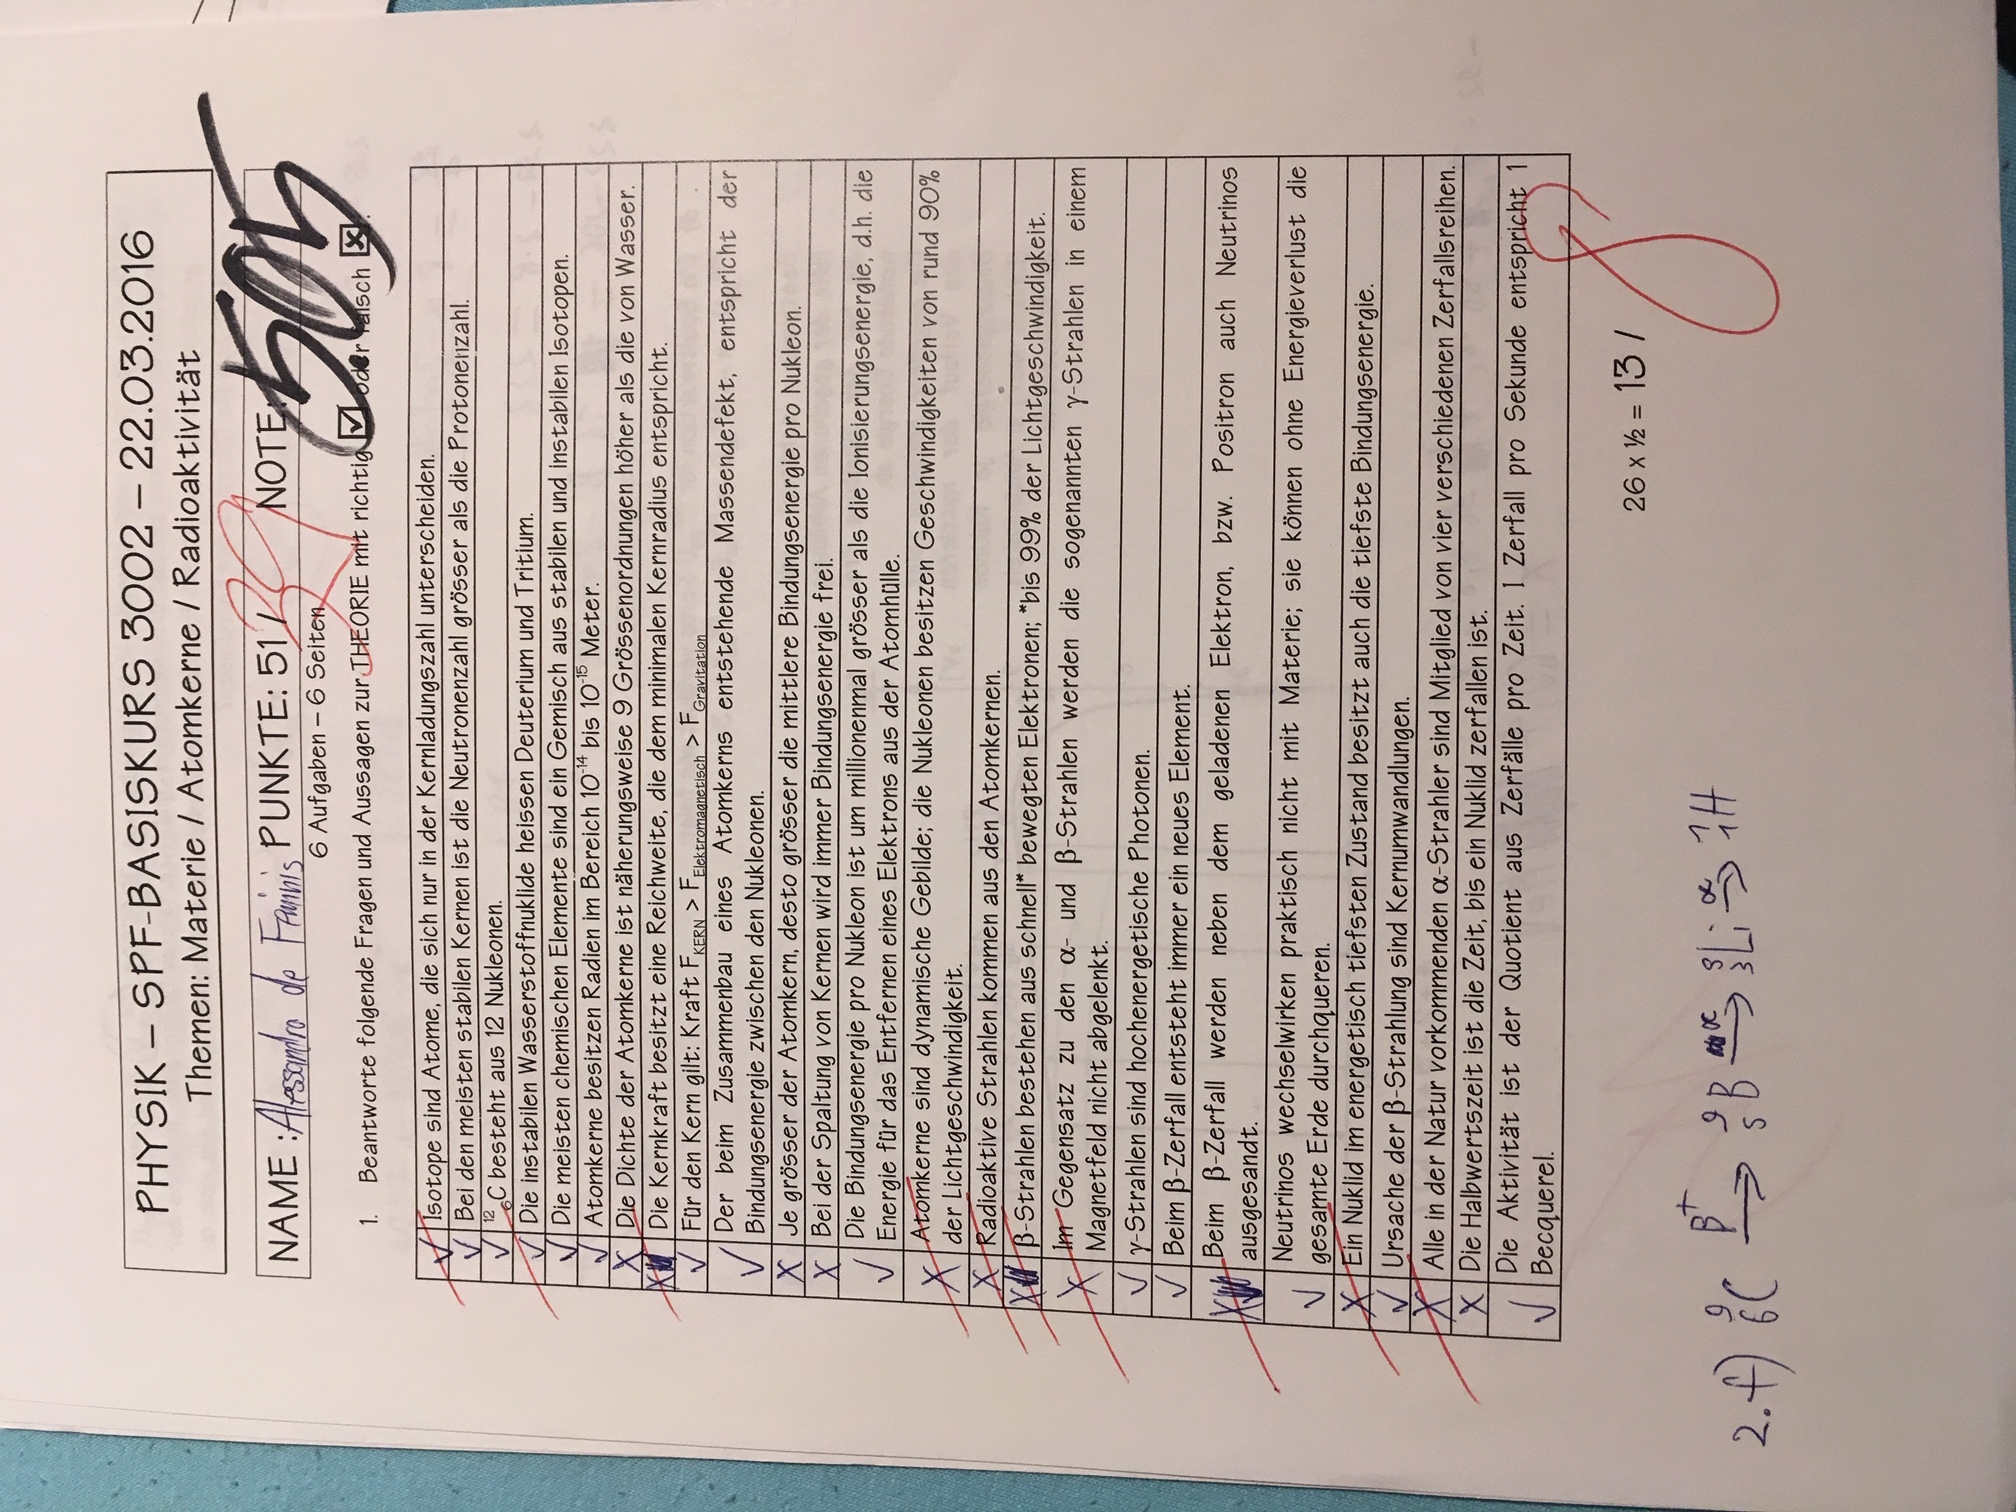 PHYSIK – SPF-BASISKURS 3002 – 22.03.2016
Themen: Materie / Atomkerne / Radioaktivität
NAME : Alessandro de PUNKTE: 51 / 39 NOTE: 5.05
6 Aufgaben – 6 Seiten
1. Beantworte folgende Fragen und Aussagen zur THEORIE mit richtig ☑ oder falsch ☒.
✓ Isotope sind Atome, die sich nur in der Kernladungszahl unterscheiden.
✓ Bei den meisten stabilen Kernen ist die Neutronenzahl grösser als die Protonenzahl.
✓ ¹²₆C besteht aus 12 Nukleonen.
✓ Die instabilen Wasserstoffnuklide heissen Deuterium und Tritium.
✓ Die meisten chemischen Elemente sind ein Gemisch aus stabilen und instabilen Isotopen.
✓ Atomkerne besitzen Radien im Bereich 10⁻¹⁴ bis 10⁻¹⁵ Meter.
X Die Dichte der Atomkerne ist näherungsweise 9 Grössenordnungen höher als die von Wasser.
X Die Kernkraft besitzt eine Reichweite, die dem minimalen Kernradius entspricht.
✓ Für den Kern gilt: Kraft F_KERN > F_Elektromagnetisch > F_Gravitation
Der beim Zusammenbau eines Atomkerns entstehende Massendefekt, entspricht der
✓ Bindungsenergie zwischen den Nukleonen.
X Je grösser der Atomkern, desto grösser die mittlere Bindungsenergie pro Nukleon.
X Bei der Spaltung von Kernen wird immer Bindungsenergie frei.
Die Bindungsenergie pro Nukleon ist um millionenmal grösser als die Ionisierungsenergie, d.h. die
✓ Energie für das Entfernen eines Elektrons aus der Atomhülle.
Atomkerne sind dynamische Gebilde; die Nukleonen besitzen Geschwindigkeiten von rund 90%
X der Lichtgeschwindigkeit.
X Radioaktive Strahlen kommen aus den Atomkernen.
X β-Strahlen bestehen aus schnell* bewegten Elektronen; *bis 99% der Lichtgeschwindigkeit.
Im Gegensatz zu den α- und β-Strahlen werden die sogenannten γ-Strahlen in einem
X Magnetfeld nicht abgelenkt.
✓ γ-Strahlen sind hochenergetische Photonen.
✓ Beim β-Zerfall entsteht immer ein neues Element.
Beim β-Zerfall werden neben dem geladenen Elektron, bzw. Positron auch Neutrinos
X ausgesandt.
Neutrinos wechselwirken praktisch nicht mit Materie; sie können ohne Energieverlust die
✓ gesamte Erde durchqueren.
X Ein Nuklid im energetisch tiefsten Zustand besitzt auch die tiefste Bindungsenergie.
✓ Ursache der β-Strahlung sind Kernumwandlungen.
X Alle in der Natur vorkommenden α-Strahler sind Mitglied von vier verschiedenen Zerfallsreihen.
X Die Halbwertszeit ist die Zeit, bis ein Nuklid zerfallen ist.
Die Aktivität ist der Quotient aus Zerfälle pro Zeit. 1 Zerfall pro Sekunde entspricht 1
✓ Becquerel.
26 x ½ = 13 / 8
2.f) ⁹₆C β⁺→ ⁹₅B α→ ₃Li α→ ¹₁H